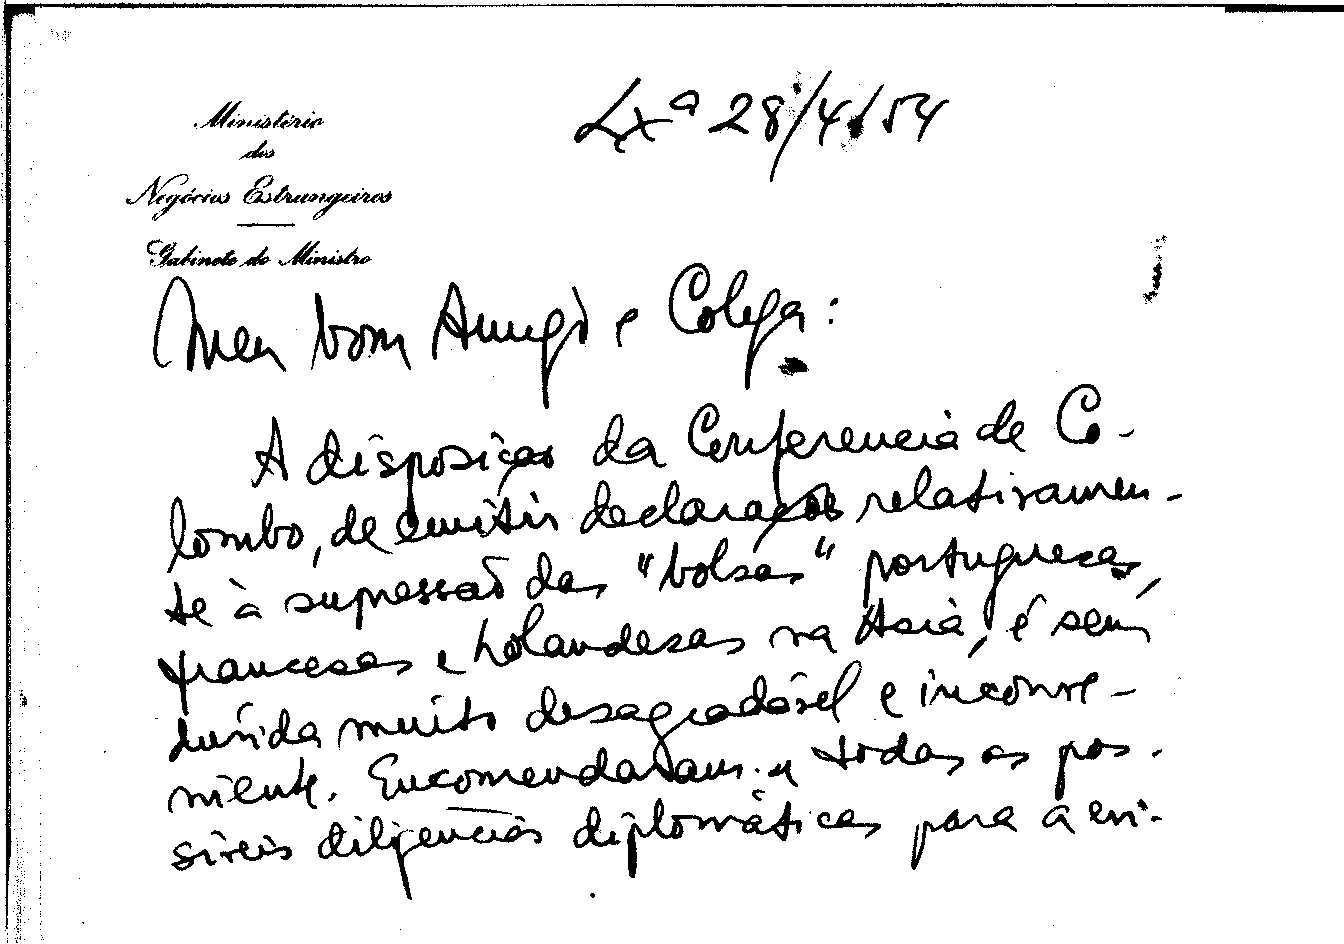 Ministério
dos
Negócios Estrangeiros
Gabinete do Ministro
Lxª 28/4/54
Meu bom Amigo e Colega:
A disposição da Conferencia de Co-
lombo, de emitir declarações relativamen-
te à supressão das "bolsas" portuguesas,
francesas e holandesas na Asia, é sem
duvida muito desagradável e inconve-
niente. Encomendaram-se todas as pos-
siveis diligencias diplomáticas para a evi-